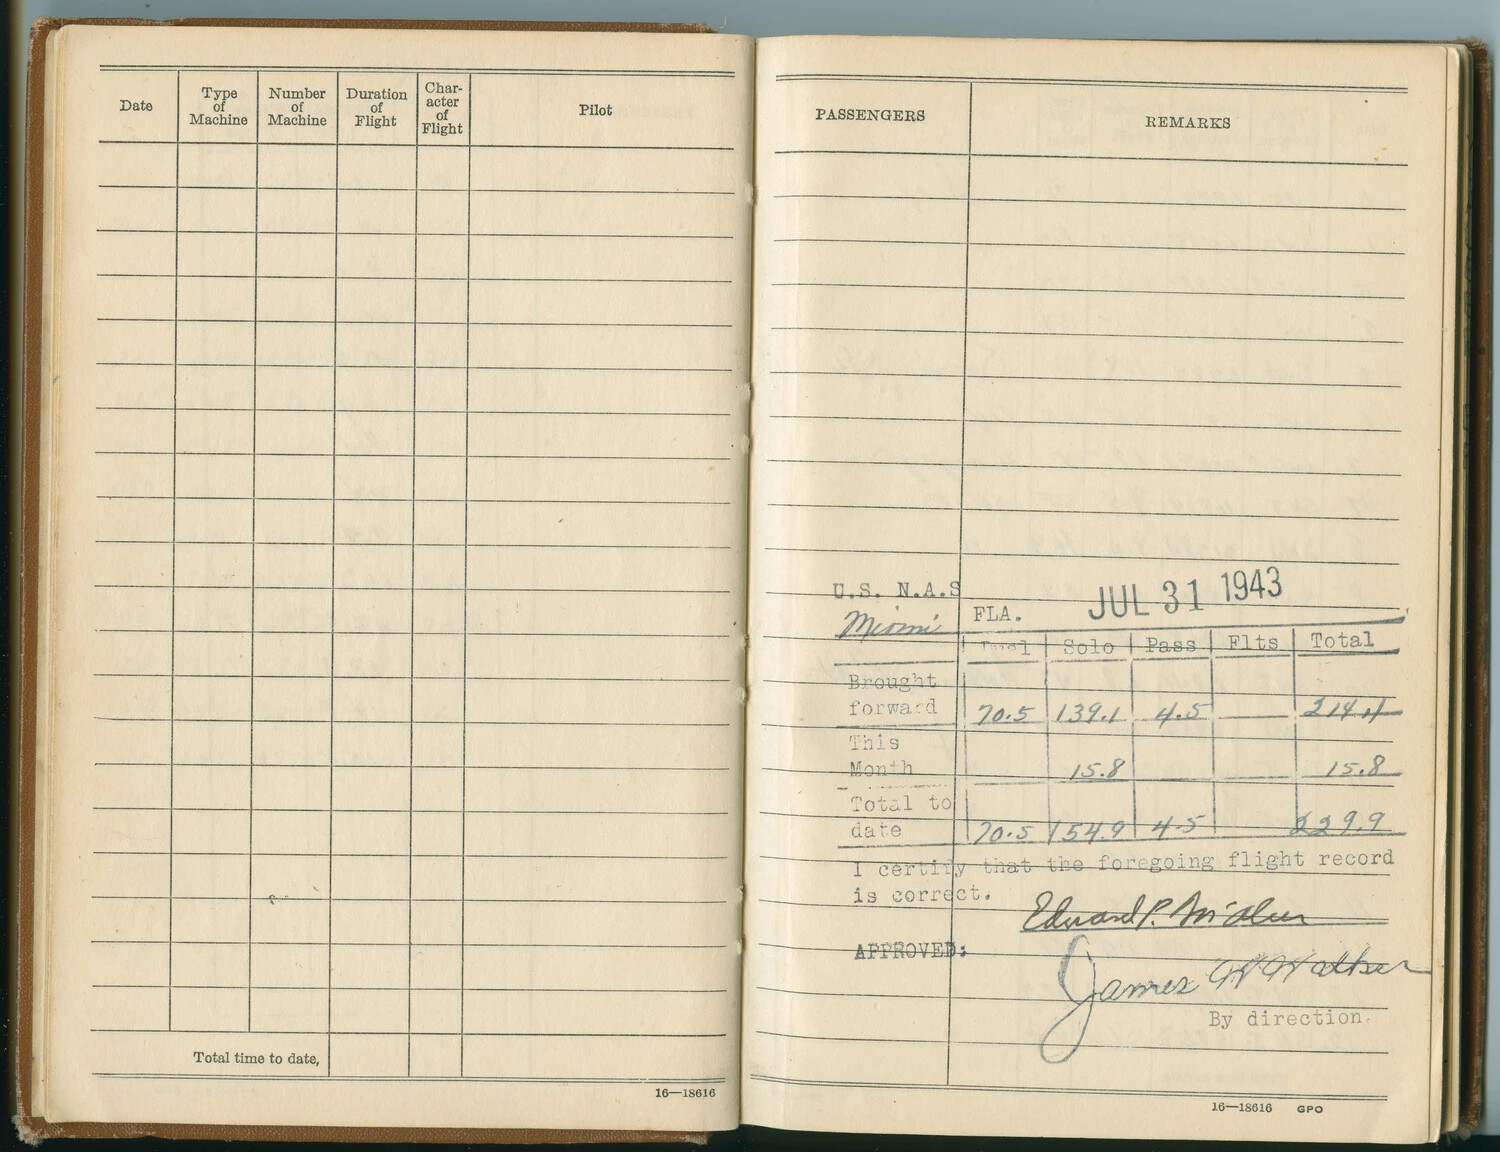 Date Type of Machine Number of Machine Duration of Flight Char- acter of Flight Pilot
Total time to date,
16—18616
PASSENGERS REMARKS
U.S. N.A.S
Miami FLA. JUL 31 1943
Solo Pass Flts Total
Brought
forward 70.5 139.1 4.5 214.1
This
Month 15.8 15.8
Total to
date 70.5 154.9 4.5 229.9
I certify that the foregoing flight record
is correct.
Edward P.
APPROVED:
James W Walker
By direction.
16—18616 GPO